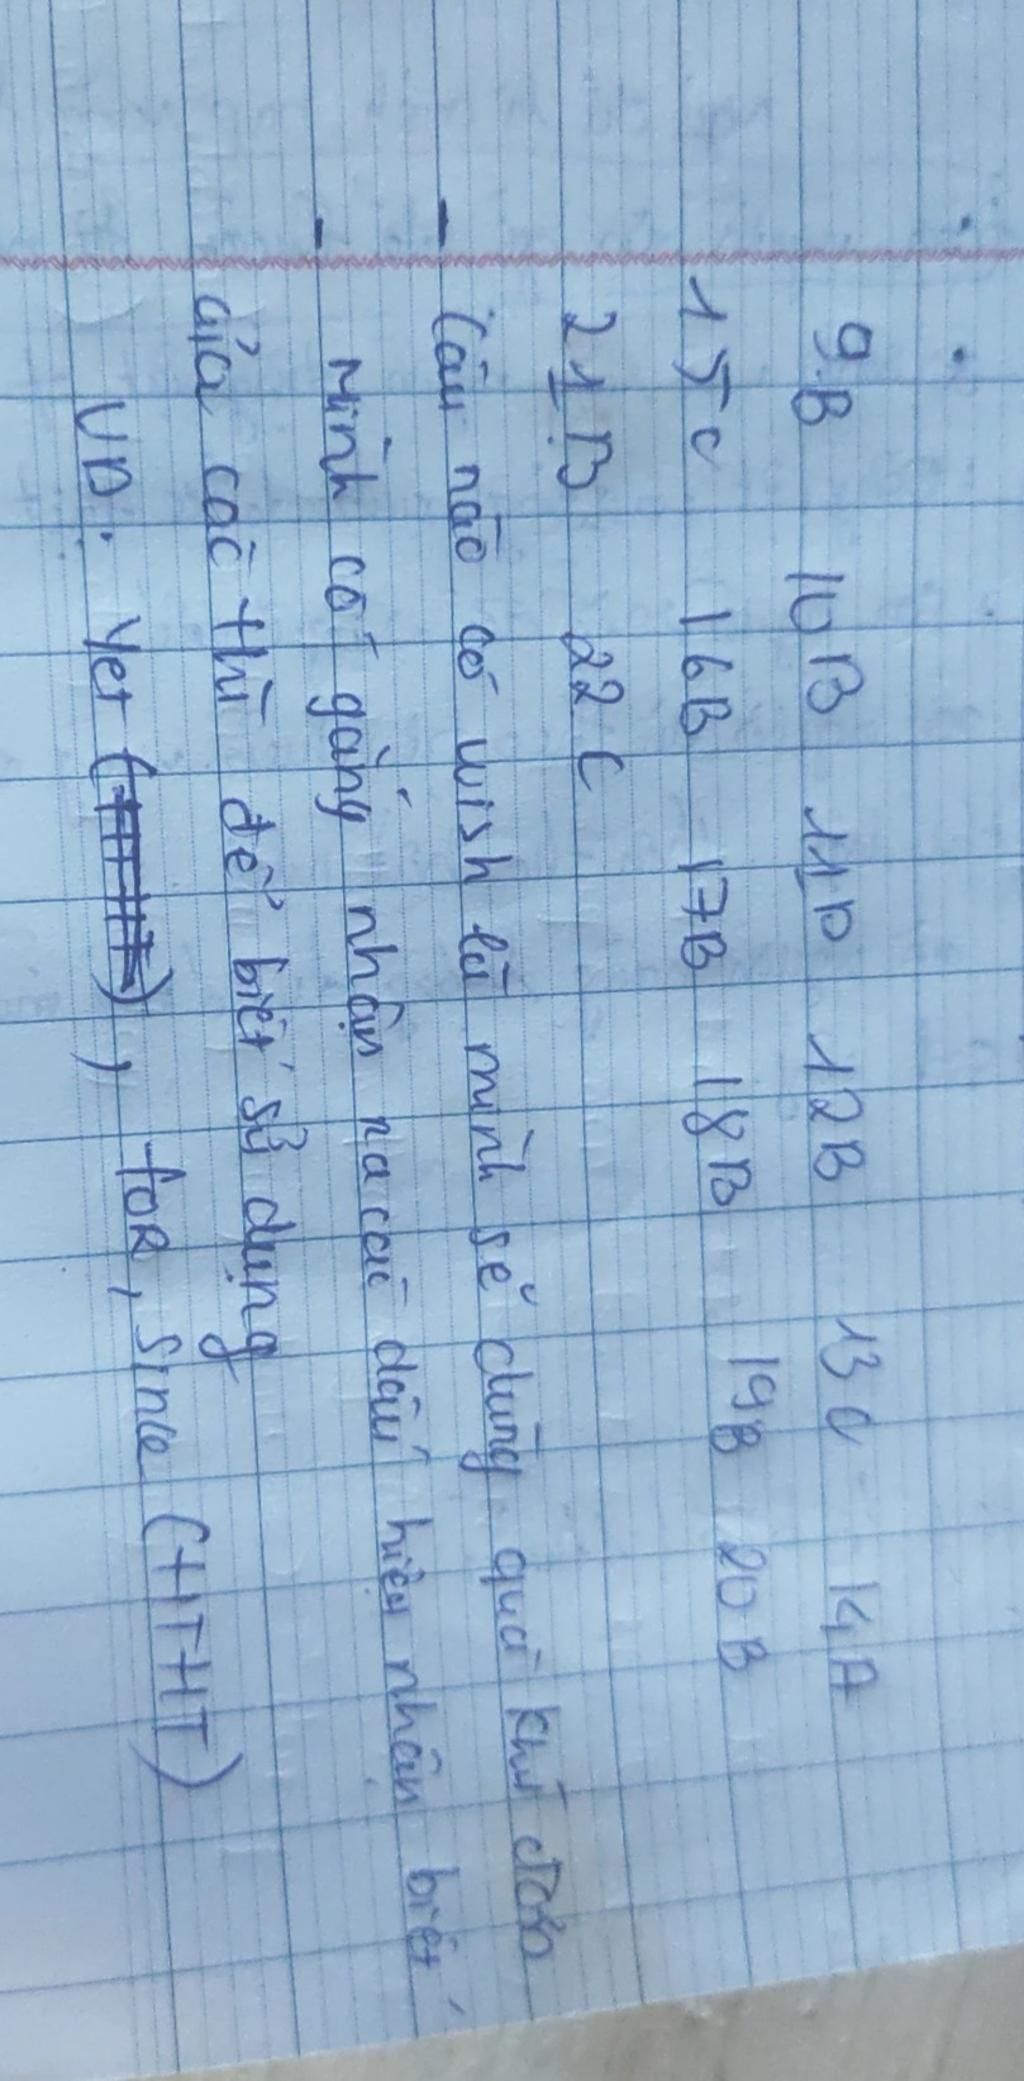 9.B 10B 11D 12B 13C 14A
15C 16B 17B 18B 19B 20B
21.B 22C
- Câu nào có wish là mình sẽ dùng quá khứ đơn
- Mình cố gắng nhận ra các dấu hiệu nhận biết
của các thì để biết sử dụng
VD: Yet ( ), for, since (HTHT)